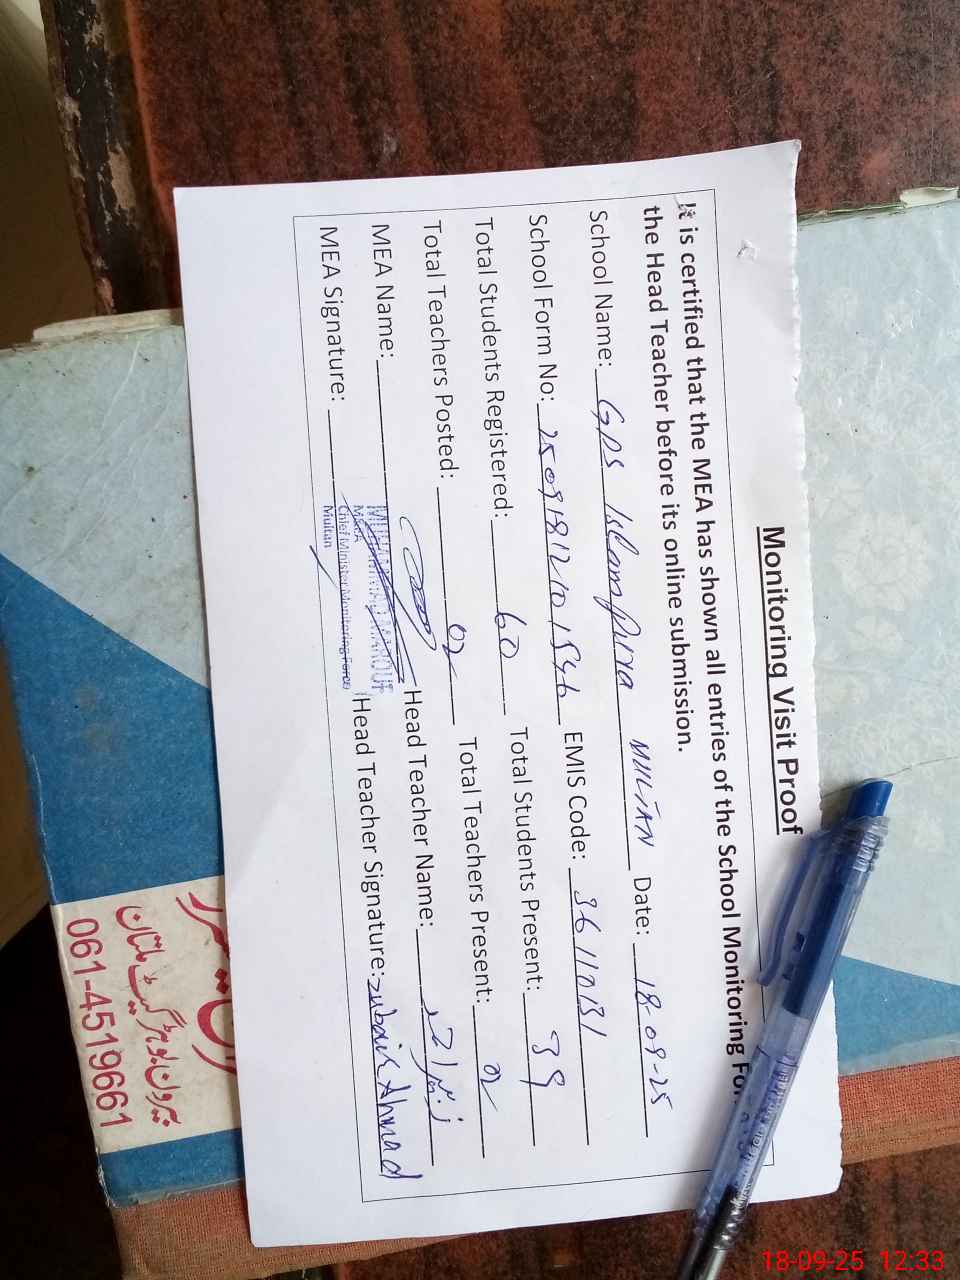 Monitoring Visit Proof
It is certified that the MEA has shown all entries of the School Monitoring For
the Head Teacher before its online submission.
School Name: GPS Islampura MULTAN Date: 18-09-25
School Form No: 25091812101546 EMIS Code: 36110131
Total Students Registered: 60 Total Students Present: 39
Total Teachers Posted: 02 Total Teachers Present: 02
MEA Name: Head Teacher Name: زبیر احمد
MEA Signature: Head Teacher Signature: Zubair Ahmad
MUHAMMAD MAROUF
MEA
Chief Minister Monitoring Force
Multan
بیرون بوہڑ گیٹ ملتان
061-4519661
18-09-25 12:33